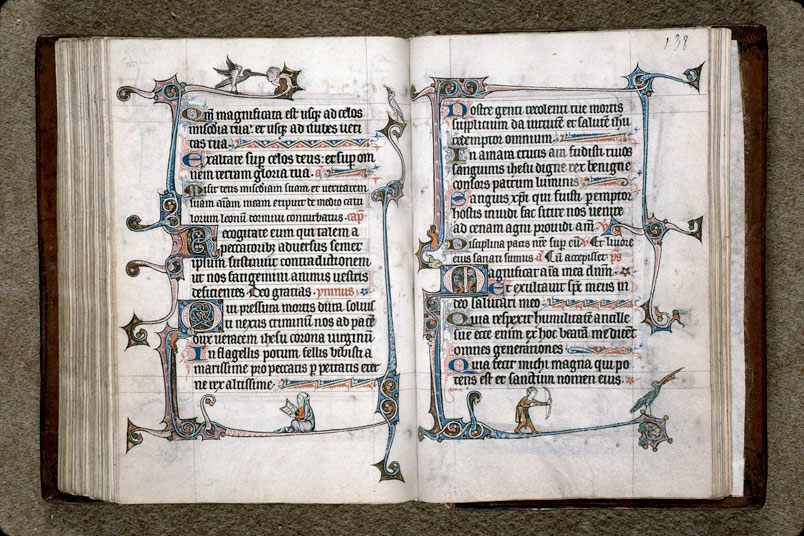 Qm̄ magnificata est usq; ad celos
misc̄dia tua: et usq; ad nubes veri
tas tua.
Exaltare sup̄ celos deus: et sup̄ om
nem terram gloria tua. a
Misit deus misc̄diam suam et veritatem
suam aīam meam eripuit de medio catu
lorum leonū dormivi conturbatus. cap̄
Recogitate eum qui talem a
peccatorib; adversus semet
ipsum sustinuit contradictionem
ut nos fatigemini animis vestris
deficientes. Deo gratias. ymnus.
Qui pressura mortis dura solvis
ti nexus criminū nos ad pacē
duc veracem ihesu corona virginū
In flagellis potum fellis bibisti a
marissime pro peccatis p̄petratis eter
ne rex altissime.
138
Nostre genti recolenti tue mortis
suplicium da virtutē et salutē ihū
redemptor omnium.
In amara crucis ara fudisti rivos
sanguinis ihesu digne rex benigne
consors patrum luminis
Sanguis xp̄i qui fuisti peremptor
hostis invidi fac sitire nos venire
ad cenam agni providi am̄. V
Disciplina pacis nr̄e sup̄ eū. R Et livore
eius sanati sumus a Cū accepisset ps̄
Magnificat aīa mea dn̄m.
Et exultavit sp̄c meus in
deo salutari meo
Quia respexit humilitatē ancille
sue ecce enim ex hoc beatā me dicēt
omnes generationes
Quia fecit michi magna qui po
tens est et sanctum nomen eius.